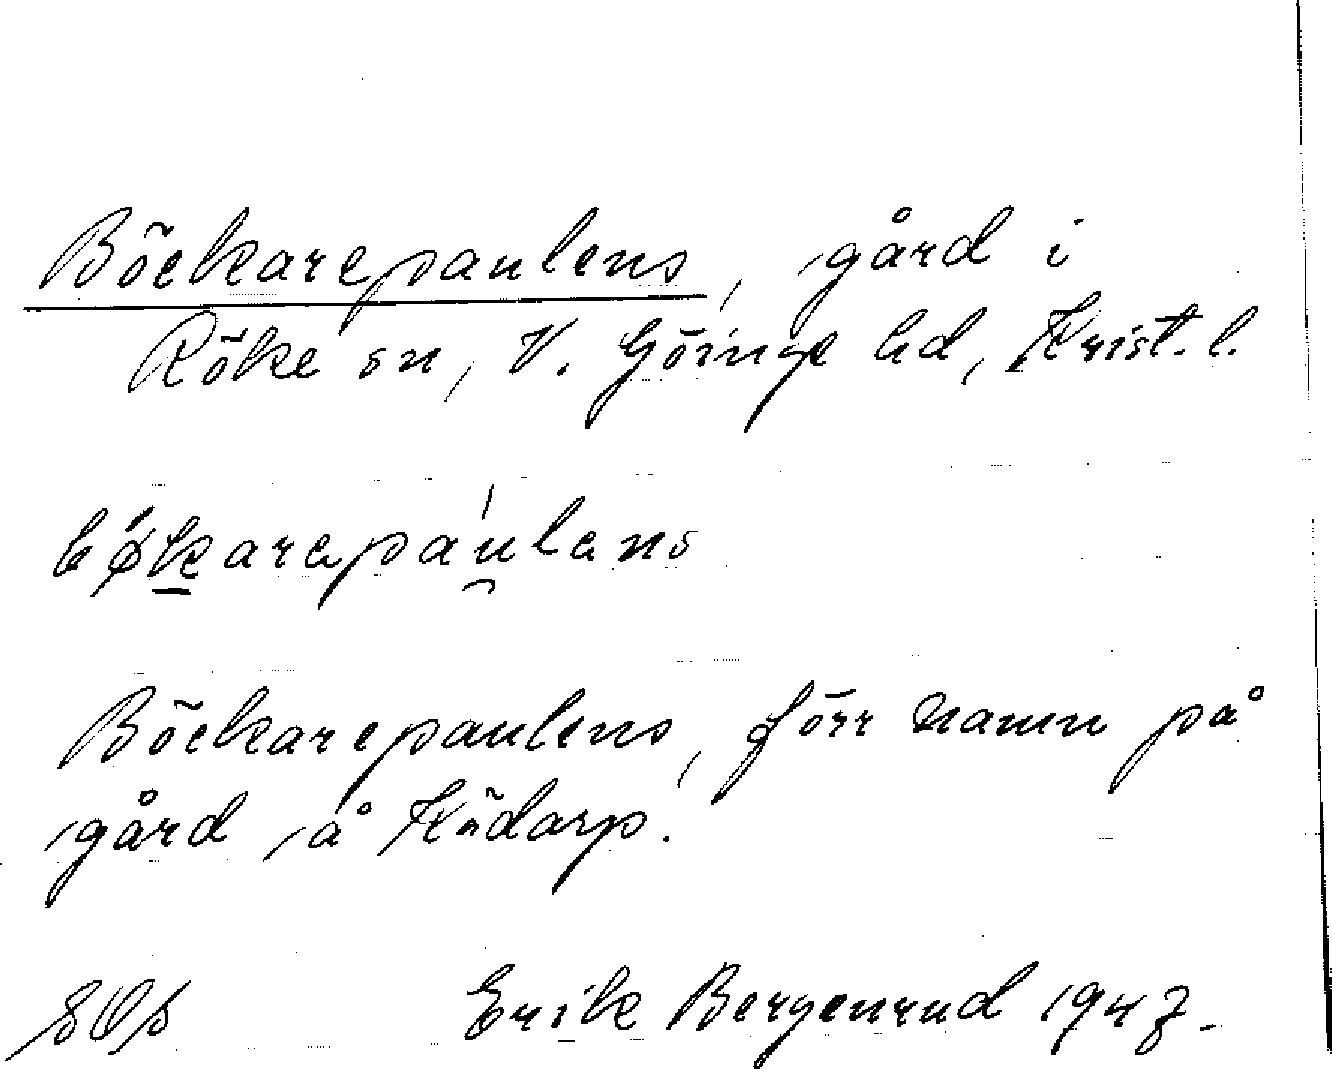 Böckarepaulens, gård i
Röke sn, V. Göinge hd, Krist. l.
bǿkarapáulans
Böckarepaulens, förr namn på
gård å Ködarp.
Erik Bergenrud 1947.